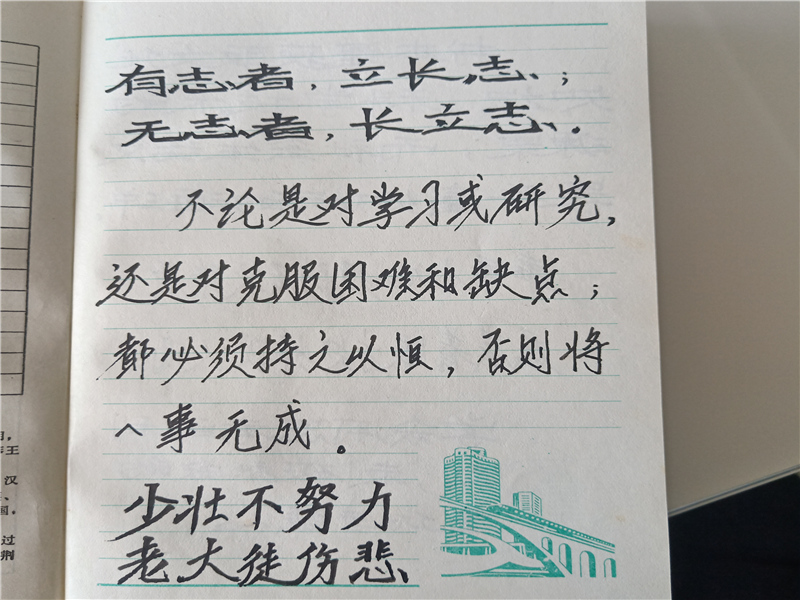 王
汉
过
荆
有志者，立长志；
无志者，长立志。
不论是对学习或研究，
还是对克服困难和缺点；
都必须持之以恒，否则将
一事无成。
少壮不努力
老大徒伤悲